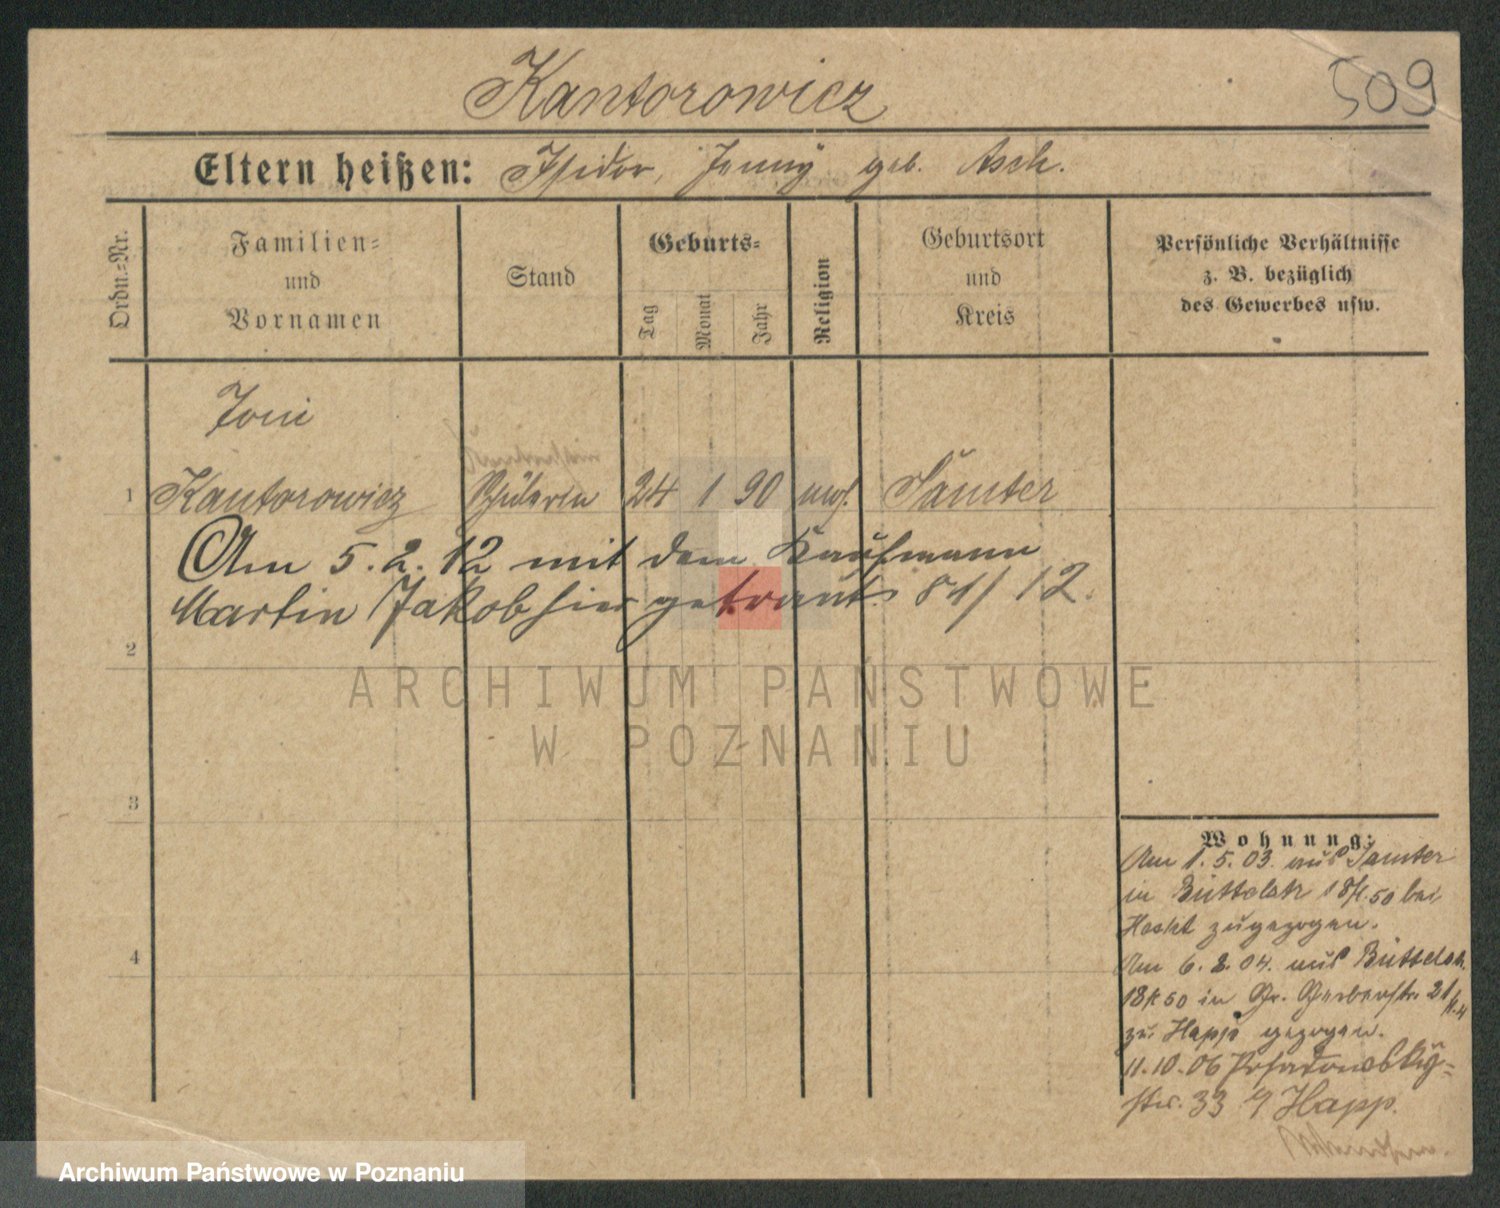 Kantorowicz
509
Eltern heißen: Isidor, Jenny geb. Asch.
Ordn.-Nr.
Familien-
und
Vornamen
Stand
Geburts-
Tag
Monat
Jahr
Religion
Geburtsort
und
Kreis
Persönliche Verhältnisse
z. B. bezüglich
des Gewerbes usw.
Toni
1 Kantorowicz Schülerin 24 1 90 mos. Samter
Am 5.2.12 mit dem Kaufmann
Martin Jakob hier getraut. 81/12.
2
ARCHIWUM PAŃSTWOWE
W POZNANIU
3
4
Wohnung:
Am 1.5.03. aus Samter
in Büttelstr 18/ 50 bei
zugezogen.
Am 6.8.04. aus Büttelstr.
18/ 50 in Gr. Gerberstr. 21
zu Happ gezogen.
11.10.06 Posadowsky-
str. 33 Happ.
Archiwum Państwowe w Poznaniu